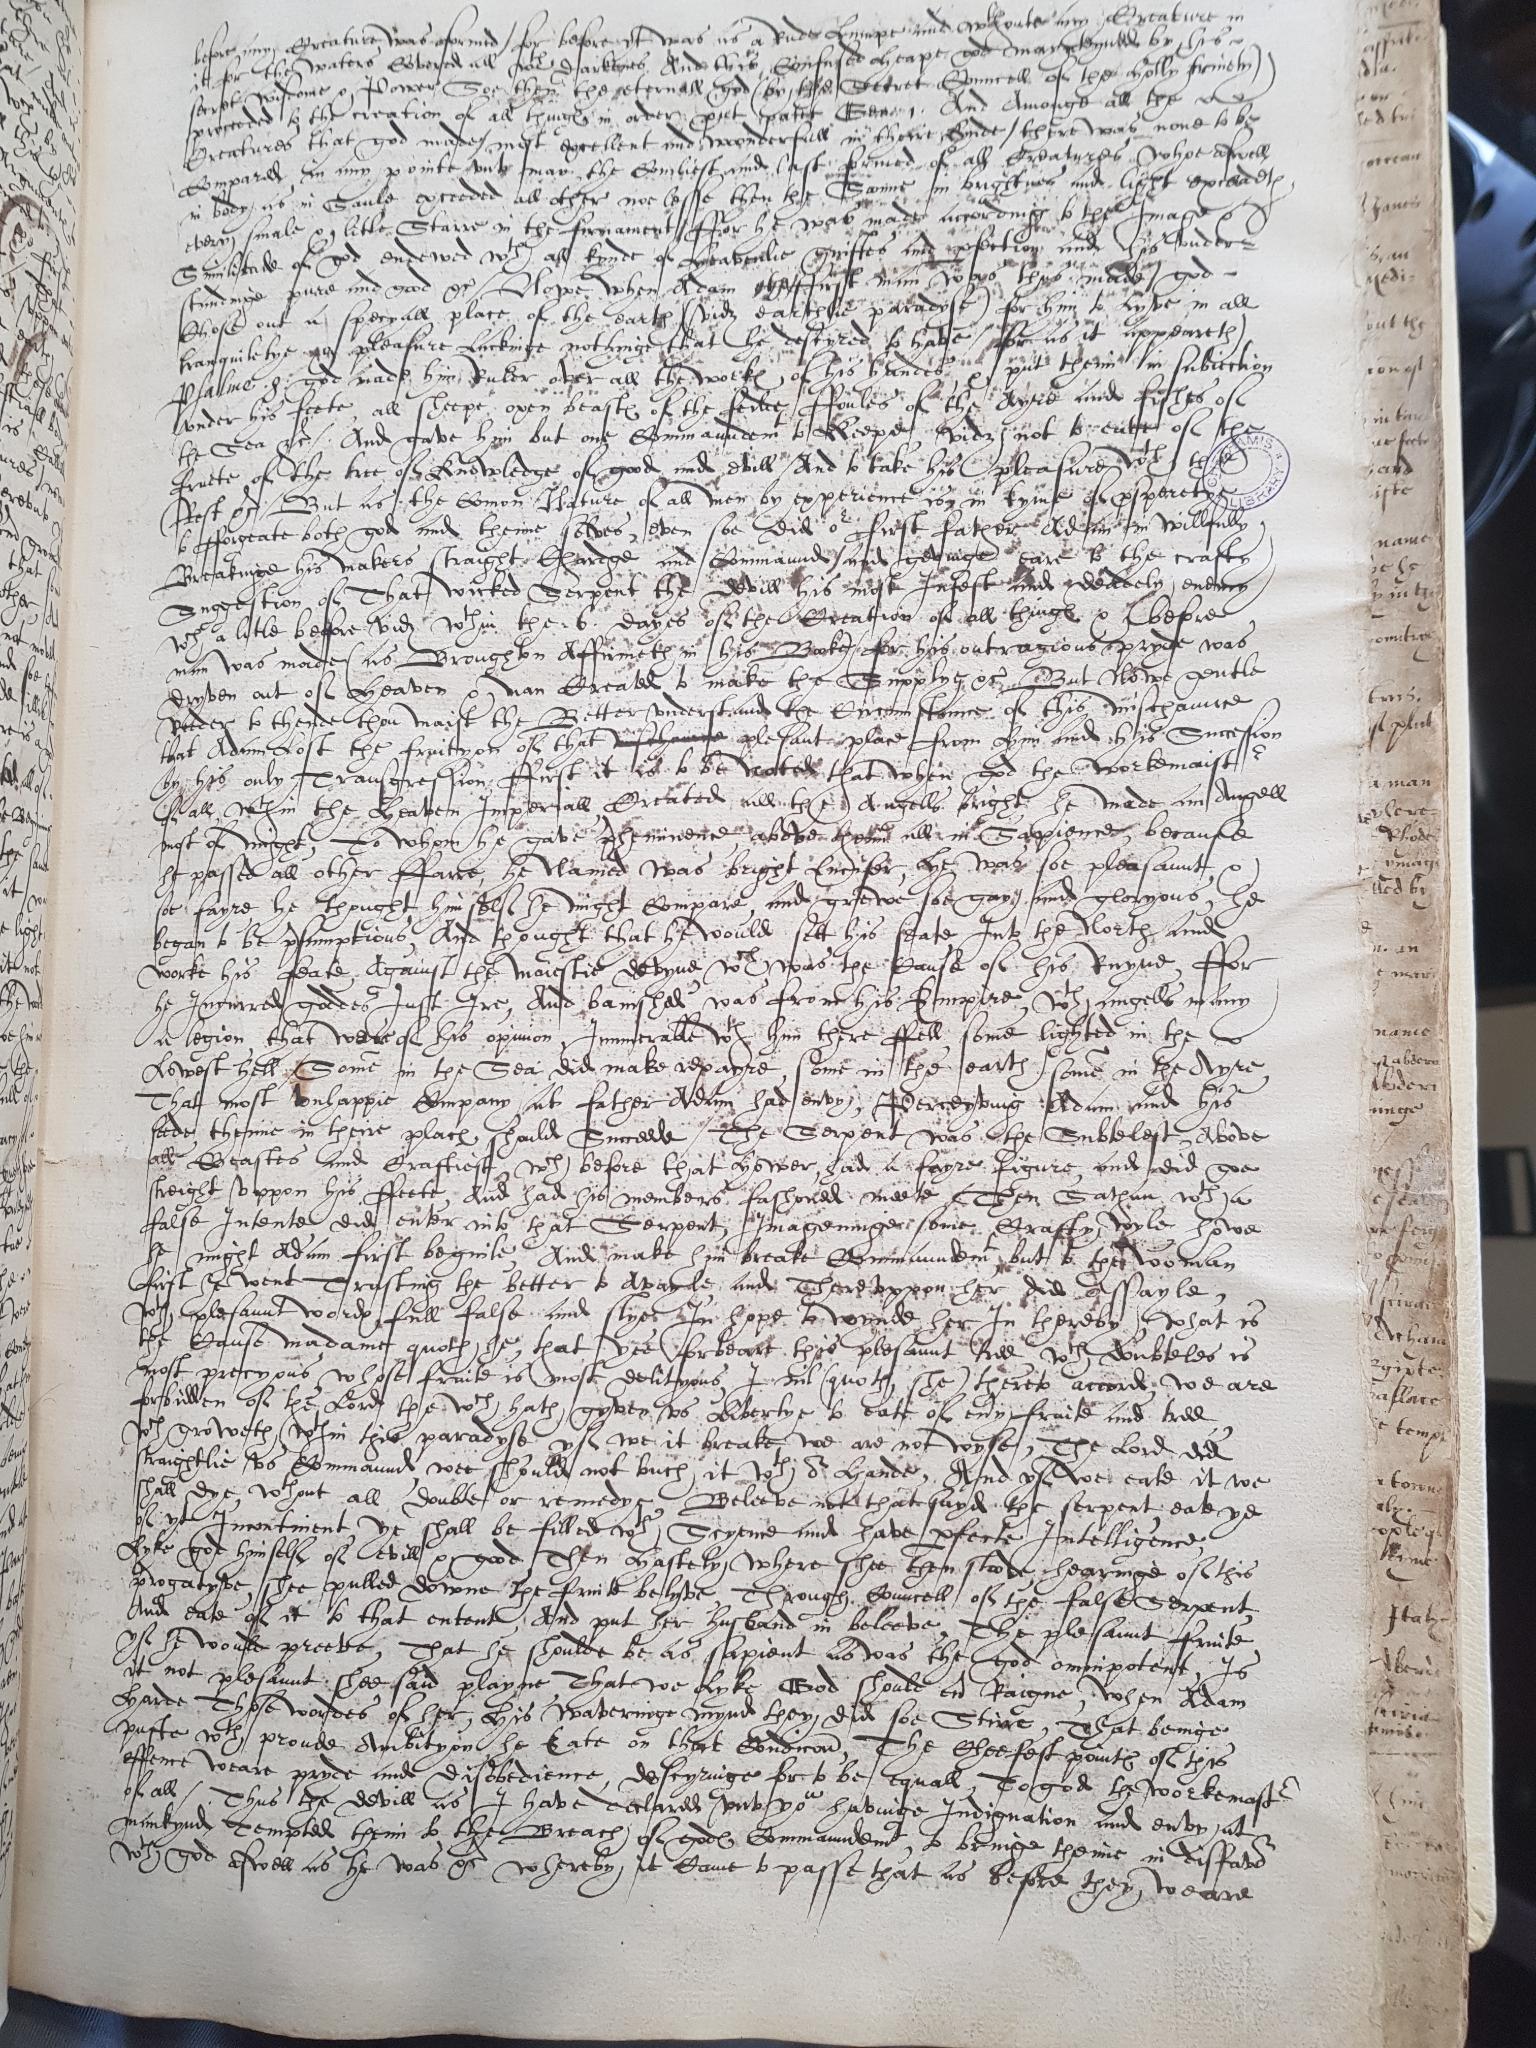 before any Creature was formed / for before it was as a rude Lumpe and wthoute any Creature in
it for the waters Covered all wth darkenes And this Confused heape god maynteyned by his
secret wisdome & Power Soe then the eternall god (by the Secret Councell of the holly trinety)
proceded to the creation of all things in order put patet Gene: 1. And Amonge all the
Creatures that god made / most excellent and wonderfull in theire kinde / there was none to be
Compared in any pointe unto man the Comliest and last formed of all Creatures whoe aswell
in body as in Saule exceeded all other noe lesse then the Sonne in brightnes and light exceadeth
every smale & litle Starre in the firmament / ffor he was made accordinge to the Image &
Similitude of god endewed wth all kynde of heavenlie guiftes and pfection and his under-
standinge pure and good &c / Nowe when Adam the ffirst man was thus made / god
Chose out a speciall place of the earth (vidz earthlie paradyse) for him to lyve in all
tranquiletye & pleasure Lackinge nothinge that he desyred to have / for as it appeareth
Psalme 8. god made him Ruler over all the works of his handes & put them in subiection
under his feete, all sheepe oxen beasts of the feilde ffoules of the Ayre and fishes of
the Sea &c / And gave him but one Commaundemt to keepe vidz not to eate of the
fruite of the tree of knowledge of good and evill / And to take his pleasure wth the
Rest &c / But as the Comon Nature of all men by experience is in tyme of psperetye
to fforgeate both god and theime selves, even soe did or first father Adam in willfully
Breakinge his makers straight Chardge and Commaund / and gevinge eare to the crafty
Suggestion of That wicked Serpent the devill his most Infest and deadely enemy
wch a litle before vidz wthin the 6. dayes of the Creation of all things & (before
man was made (as Broughton Affirmeth in his Booke) for his outragious pryde was
dryven out of Heaven & man Created to make the Supplye &c. But Nowe gentle
Reder to thende thou maist the Better understand the Circumstance of this mischaunce
that Adam Lost the fruityon of that plesant place from him and his Succession
by his only Transgression ffirst it is to be Noted that when god the workemaistr
of all, wthin the Heaven Imperiall, Created all the Angells bright he made an Angell
most of might, To whom he gave pheminence above them all in Sapience, because
he passed all other ffarre, he Named was bright Lucifer, he was soe pleasaunt, &
soe fayre he thought himself he might Compare, and grewe soe gay and gloryous, he
began to be psumptious, And thought that he would sett his seate Into the North and
worke his feate Against the maiestie devyne wch was the Cause of his Ruyne, ffor
he Incurred goddes Just Ire, And banished was from his Empire, wth angells many
a legion that were of his opinion, Inumerable wth him there ffell some lighted in the
Lowest hell Some in the Sea did make repayre, some in the earth some in the Ayre,
That most Unhappie Company, at father Adam had envy, Perceyving Adam and his
seede, theime in theire places should Succede / The Serpent was the Subtelest, Above
all Beastes and Craftiest, wch before that hower had a fayre figure, and did goe
streight uppon his ffeete, And had his members fashoned meete / Then Sathan wth a
false Intente did enter into that Serpent, Imageninge some Crafty wyle howe
he might Adam first beguile, And make him breake Commaundemt but to the woman
first he went Trusting the better to Avayle and Thereuppon her did assayle,
wth plesaunt words full false and slye In hope to wynde her In thereby, what is
the Cause madame quoth he, that yee forbeare this plesaunt tree wch doubteles is
most precyous whose fruite is most delityous, I nil (quoth she) thereto accorde, we are
forbidden of the Lord, the wch hath gyven us Libertye to eate of eny fruite and tree
wch groweth wthin this paradyse yf we it breake we are not wyse, The Lord did
straightlie us Commaund, wee should not tuch it wth or hande, And yf we eate it we
shall dye, wthout all doubte or remedye, Beleeve not that sayd the serpent, eate ye
of yt Incontinent, ye shall be filled wth Scyence and have pfecte Intelligence
Lyke god himself of evill & good, Then hastely where shee then stoode, hearinge of this
progatyve, shee pulled downe the fruite belyve, Through Councell of the false Serpent,
And eate of it to that entent, And put her husband in beleeve, The plesaunt fruite
yf he would preeve, That he shoulde be as sapient as was the god omnipotent, Is
it not plesaunt shee said playne That we Lyke God should en Raigne, when Adam
harde Those wordes of her, his waveringe mynd they did soe Stirre, That beinge
pufte wth proude Ambityon he Eate on that Condicon, The Cheefest points of this
offence weare pryde and disobedience, desyringe for to be equall, To god the workemastr
of all / Thus the devill as I have declared unto you havinge Indignation and envy at
mankynd Tempted them to the Breach of gods Commaundemt, to bringe theime in disfavor
wth god aswell as he was &c whereby it Came to passe that as before they weare